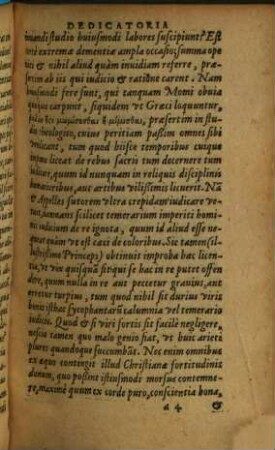 DEDICATORIA
iuuandi studio huiusmodi labores suscipiunt? Est
extremæ dementiæ ampla occasio, summa ope
niti & nihil aliud quàm inuidiam referre, præ
sertim ab iis qui iudicio & ratione carent. Nam
huiusmodi fere sunt, qui tanquam Momi obuia
quæque carpunt, siquidem vt Græci loquuntur,
præsertim in stu
theologico, cuius peritiam passim omnes sibi
vendicant, tum quòd hisce temporibus cuique
impune liceat de rebus sacri tum decernere tum
iudicare, quum id nunquam in reliquis disciplinis
humanioribus, aut artibus vilissimis licuerit. Nã
& Apellis sutorem vltra crepidam iudicare ve
tuit, scilicet temerarium imperiti homi
nis iudicium de re ignota, quum id aliud esse
negent quàm vt est cæci de coloribus. Sic tamen (il
lustrissime Princeps) obtinuit improba hæc licen
tia, vt vix quisquã sit qui se hac in re putet offen
dere, quum nulla in re aut peccetur grauius, aut
erretur turpius, tum quod nihil sit durius viris
bonis isthac sycophantarũ calumnia vel temerario
iudicio. Quod & si viri fortis sit facilè negligere,
nescio tamen quo malo genio fiat, vt huic arieti
plures quandoque succumbãt. Nec enim omnibus
ex æquo contengit illud Christianæ fortitudinis
donum, quo possint istiusmodi morsus contemne
re, maximè quum ex corde puro, conscientia bona,
a 4 &